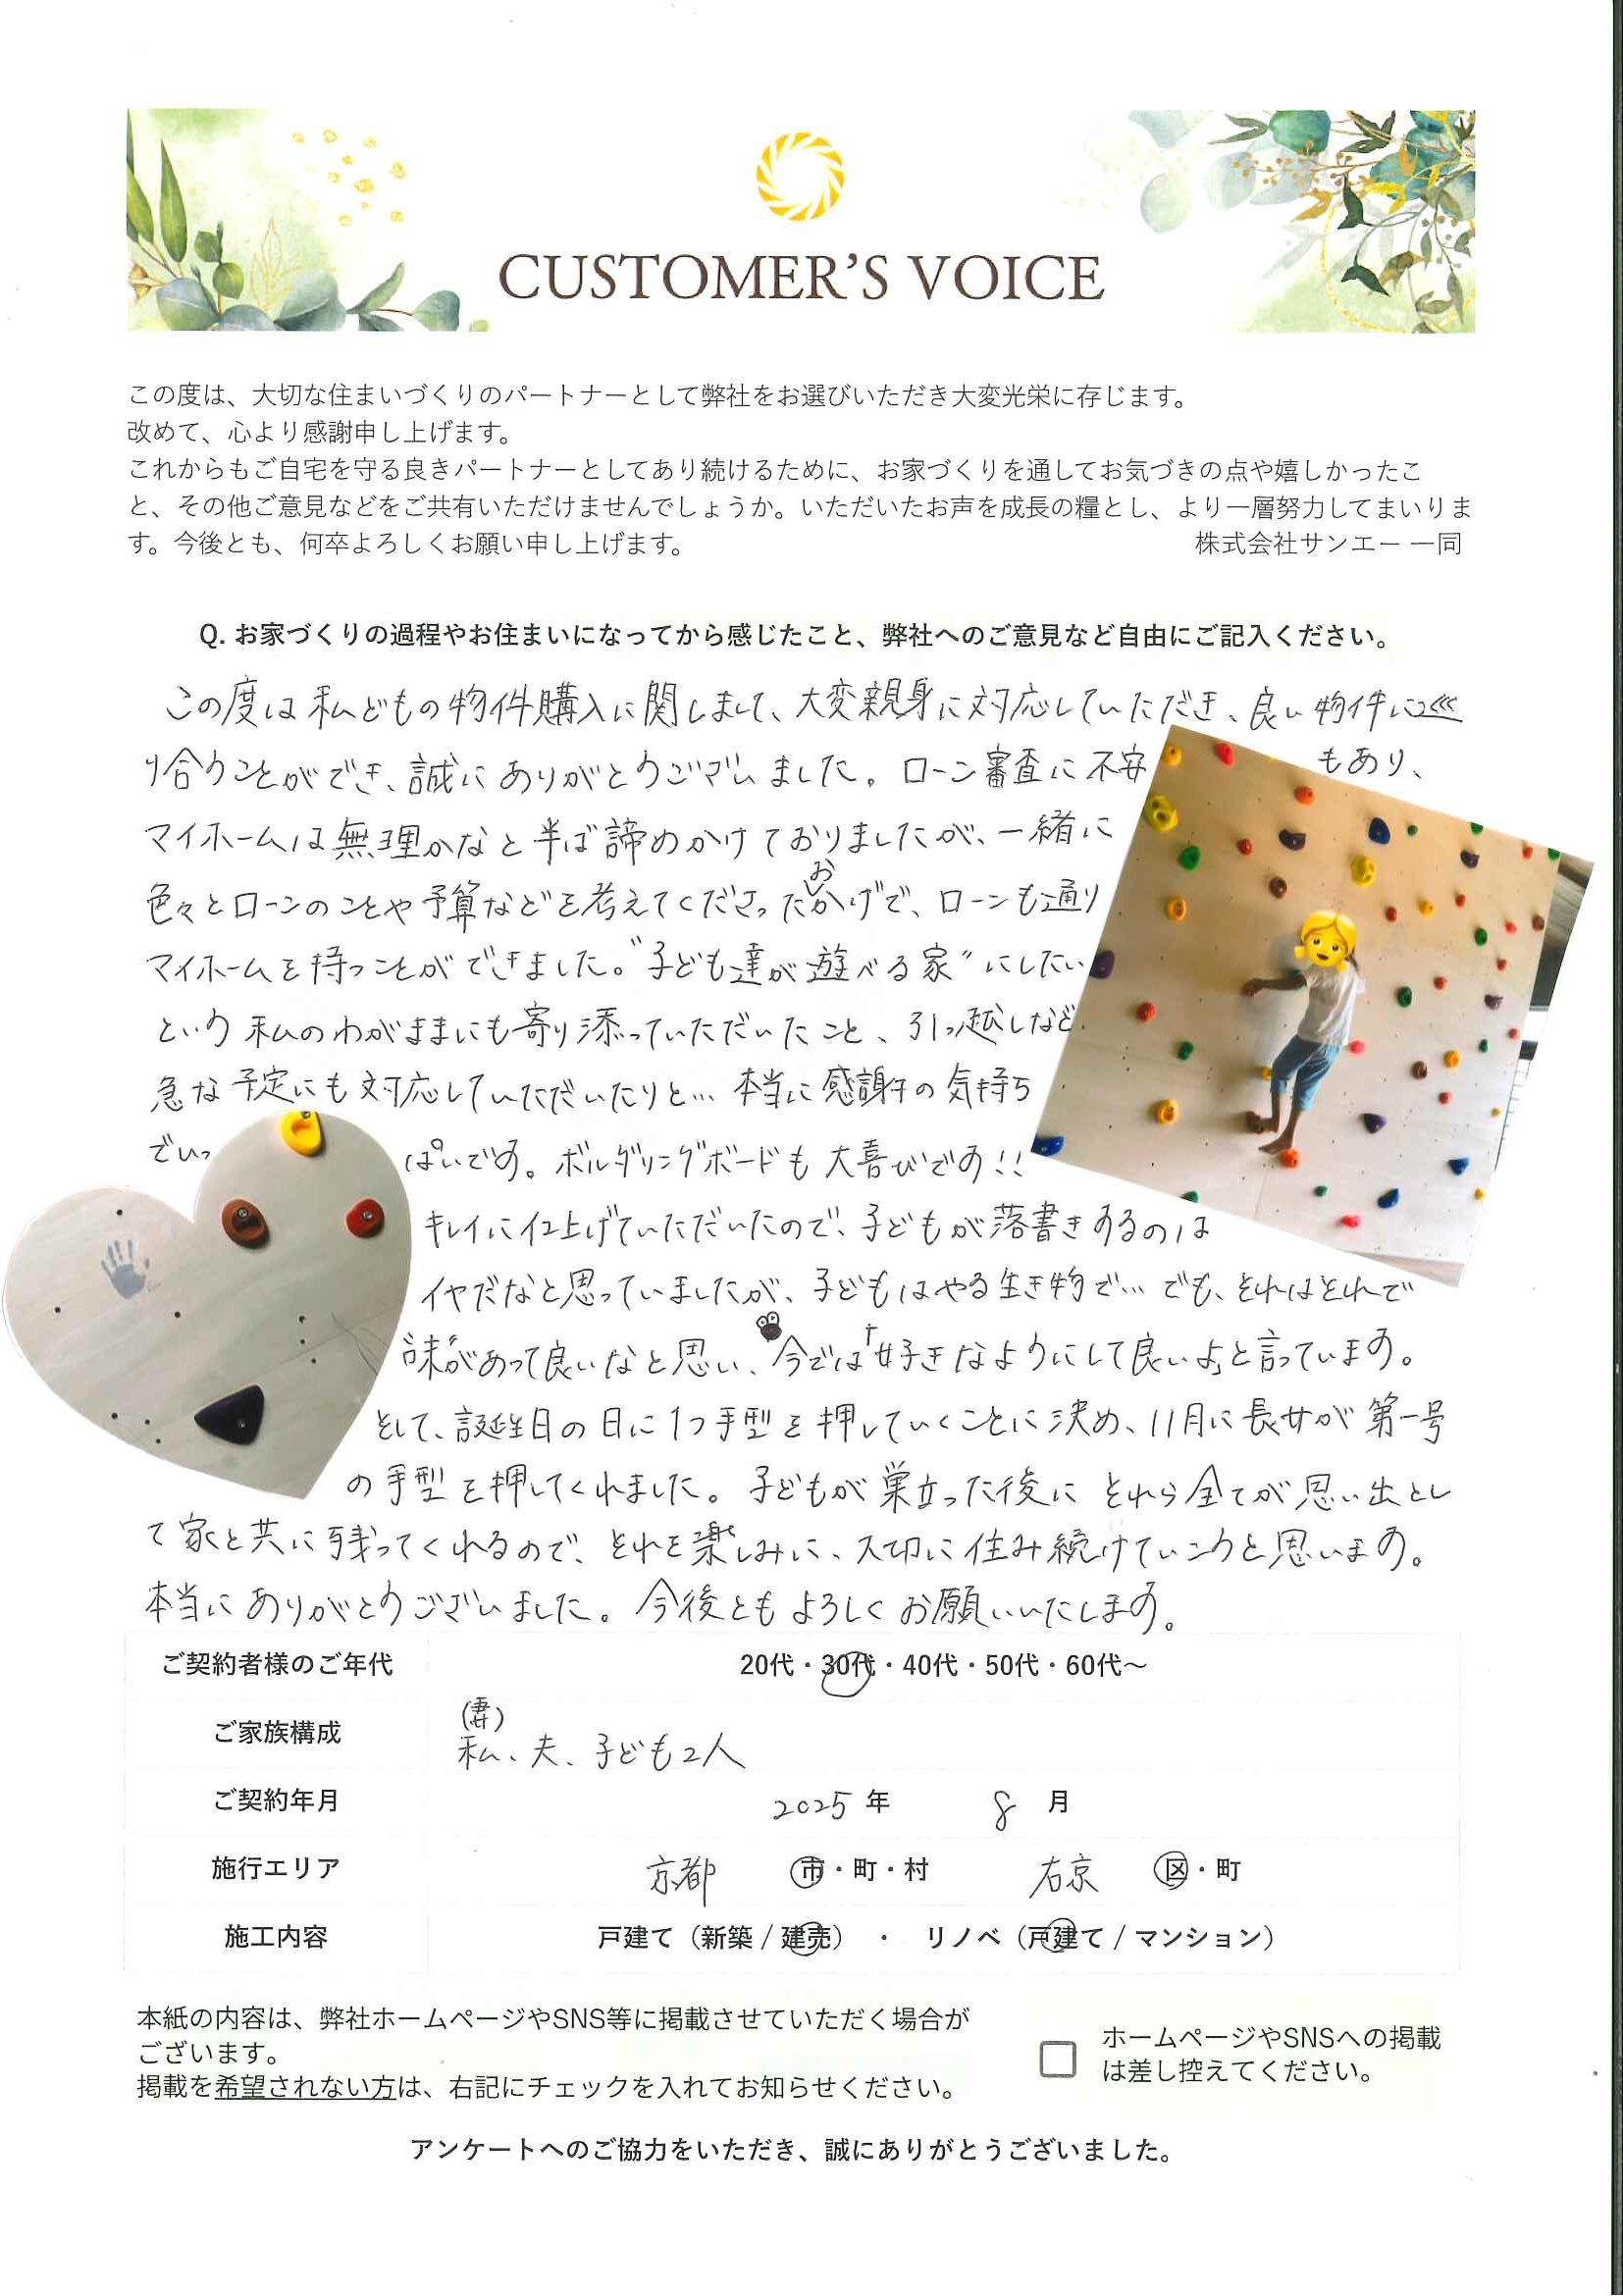 CUSTOMER'S VOICE
この度は、大切な住まいづくりのパートナーとして弊社をお選びいただき大変光栄に存じます。
改めて、心より感謝申し上げます。
これからもご自宅を守る良きパートナーとしてあり続けるために、お家づくりを通してお気づきの点や嬉しかったこ
と、その他ご意見などをご共有いただけませんでしょうか。いただいたお声を成長の糧とし、より一層努力してまいりま
す。今後とも、何卒よろしくお願い申し上げます。 株式会社サンエー 一同
Q. お家づくりの過程やお住まいになってから感じたこと、弊社へのご意見など自由にご記入ください。
この度は私どもの物件購入に関しまして、大変親身に対応していただき、良い物件に巡
り合うことができ、誠にありがとうございました。ローン審査に不安もあり、
マイホームは無理かなと半ば諦めかけておりましたが、一緒に
色々とローンのことや予算などを考えてくださったおかげで、ローンも通り
マイホームを持つことができました。"子ども達が遊べる家"にしたい
という私のわがままにも寄り添っていただいたこと、引っ越しなど
急な予定にも対応していただいたりと… 本当に感謝の気持ち
でいっぱいです。ボルダリングボードも大喜びです!!
キレイに仕上げていただいたので、子どもが落書きするのは
イヤだなと思っていましたが、子どもはやる生き物で… でも、それはそれで
味があって良いなと思い、今では「好きなようにして良いよ」と言っています。
そして、誕生日の日に1つ手型を押していくことに決め、11月に長女が第一号
の手型を押してくれました。子どもが巣立った後にそれら全てが思い出とし
て家と共に残ってくれるので、それを楽しみに、大切に住み続けていこうと思います。
本当にありがとうございました。今後ともよろしくお願いいたします。
ご契約者様のご年代 20代・30代・40代・50代・60代〜
ご家族構成 (妻)
私、夫、子ども2人
ご契約年月 2025 年 8 月
施行エリア 京都 市・町・村 右京 区・町
施工内容 戸建て（新築 / 建売） ・ リノベ（戸建て / マンション）
本紙の内容は、弊社ホームページやSNS等に掲載させていただく場合が
ございます。
掲載を希望されない方は、右記にチェックを入れてお知らせください。
ホームページやSNSへの掲載
は差し控えてください。
アンケートへのご協力をいただき、誠にありがとうございました。